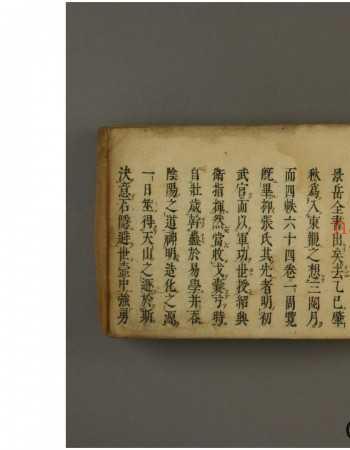 景岳全書出矣去乙巳肇
秋為入東觀之想三閱月
而四帙六十四卷一周覽
既畢抑張氏其先者明初
武官而以軍功世授紹興
衛指揮然嘗收戈棄弓時
自壯歲幹蠱於易學并吞
陰陽之道神明造化之源
一日筮得天山之遯於斯
決意石隱避世壺中強勇